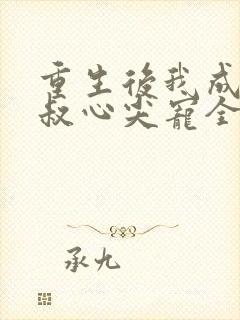 重生後我成
叔心尖寵全
承九